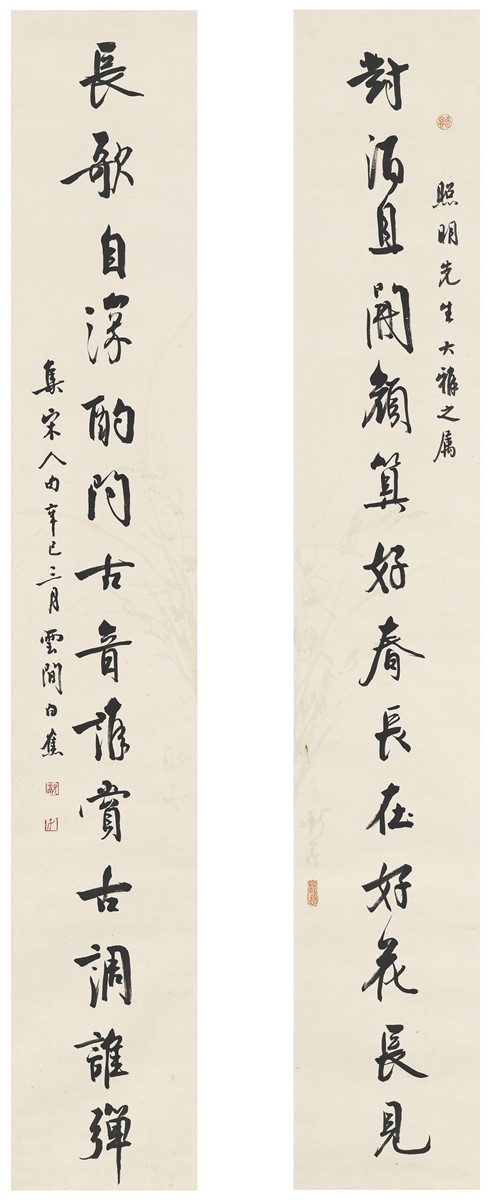 照明先生大雅之属
對酒且開顔算好春長在好花長見
長歌自深酌問古音誰賞古調誰彈
集宋人句辛巳三月雲間白蕉